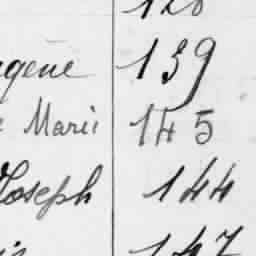 128
ugène 139
e Marie 145
Joseph 144
147